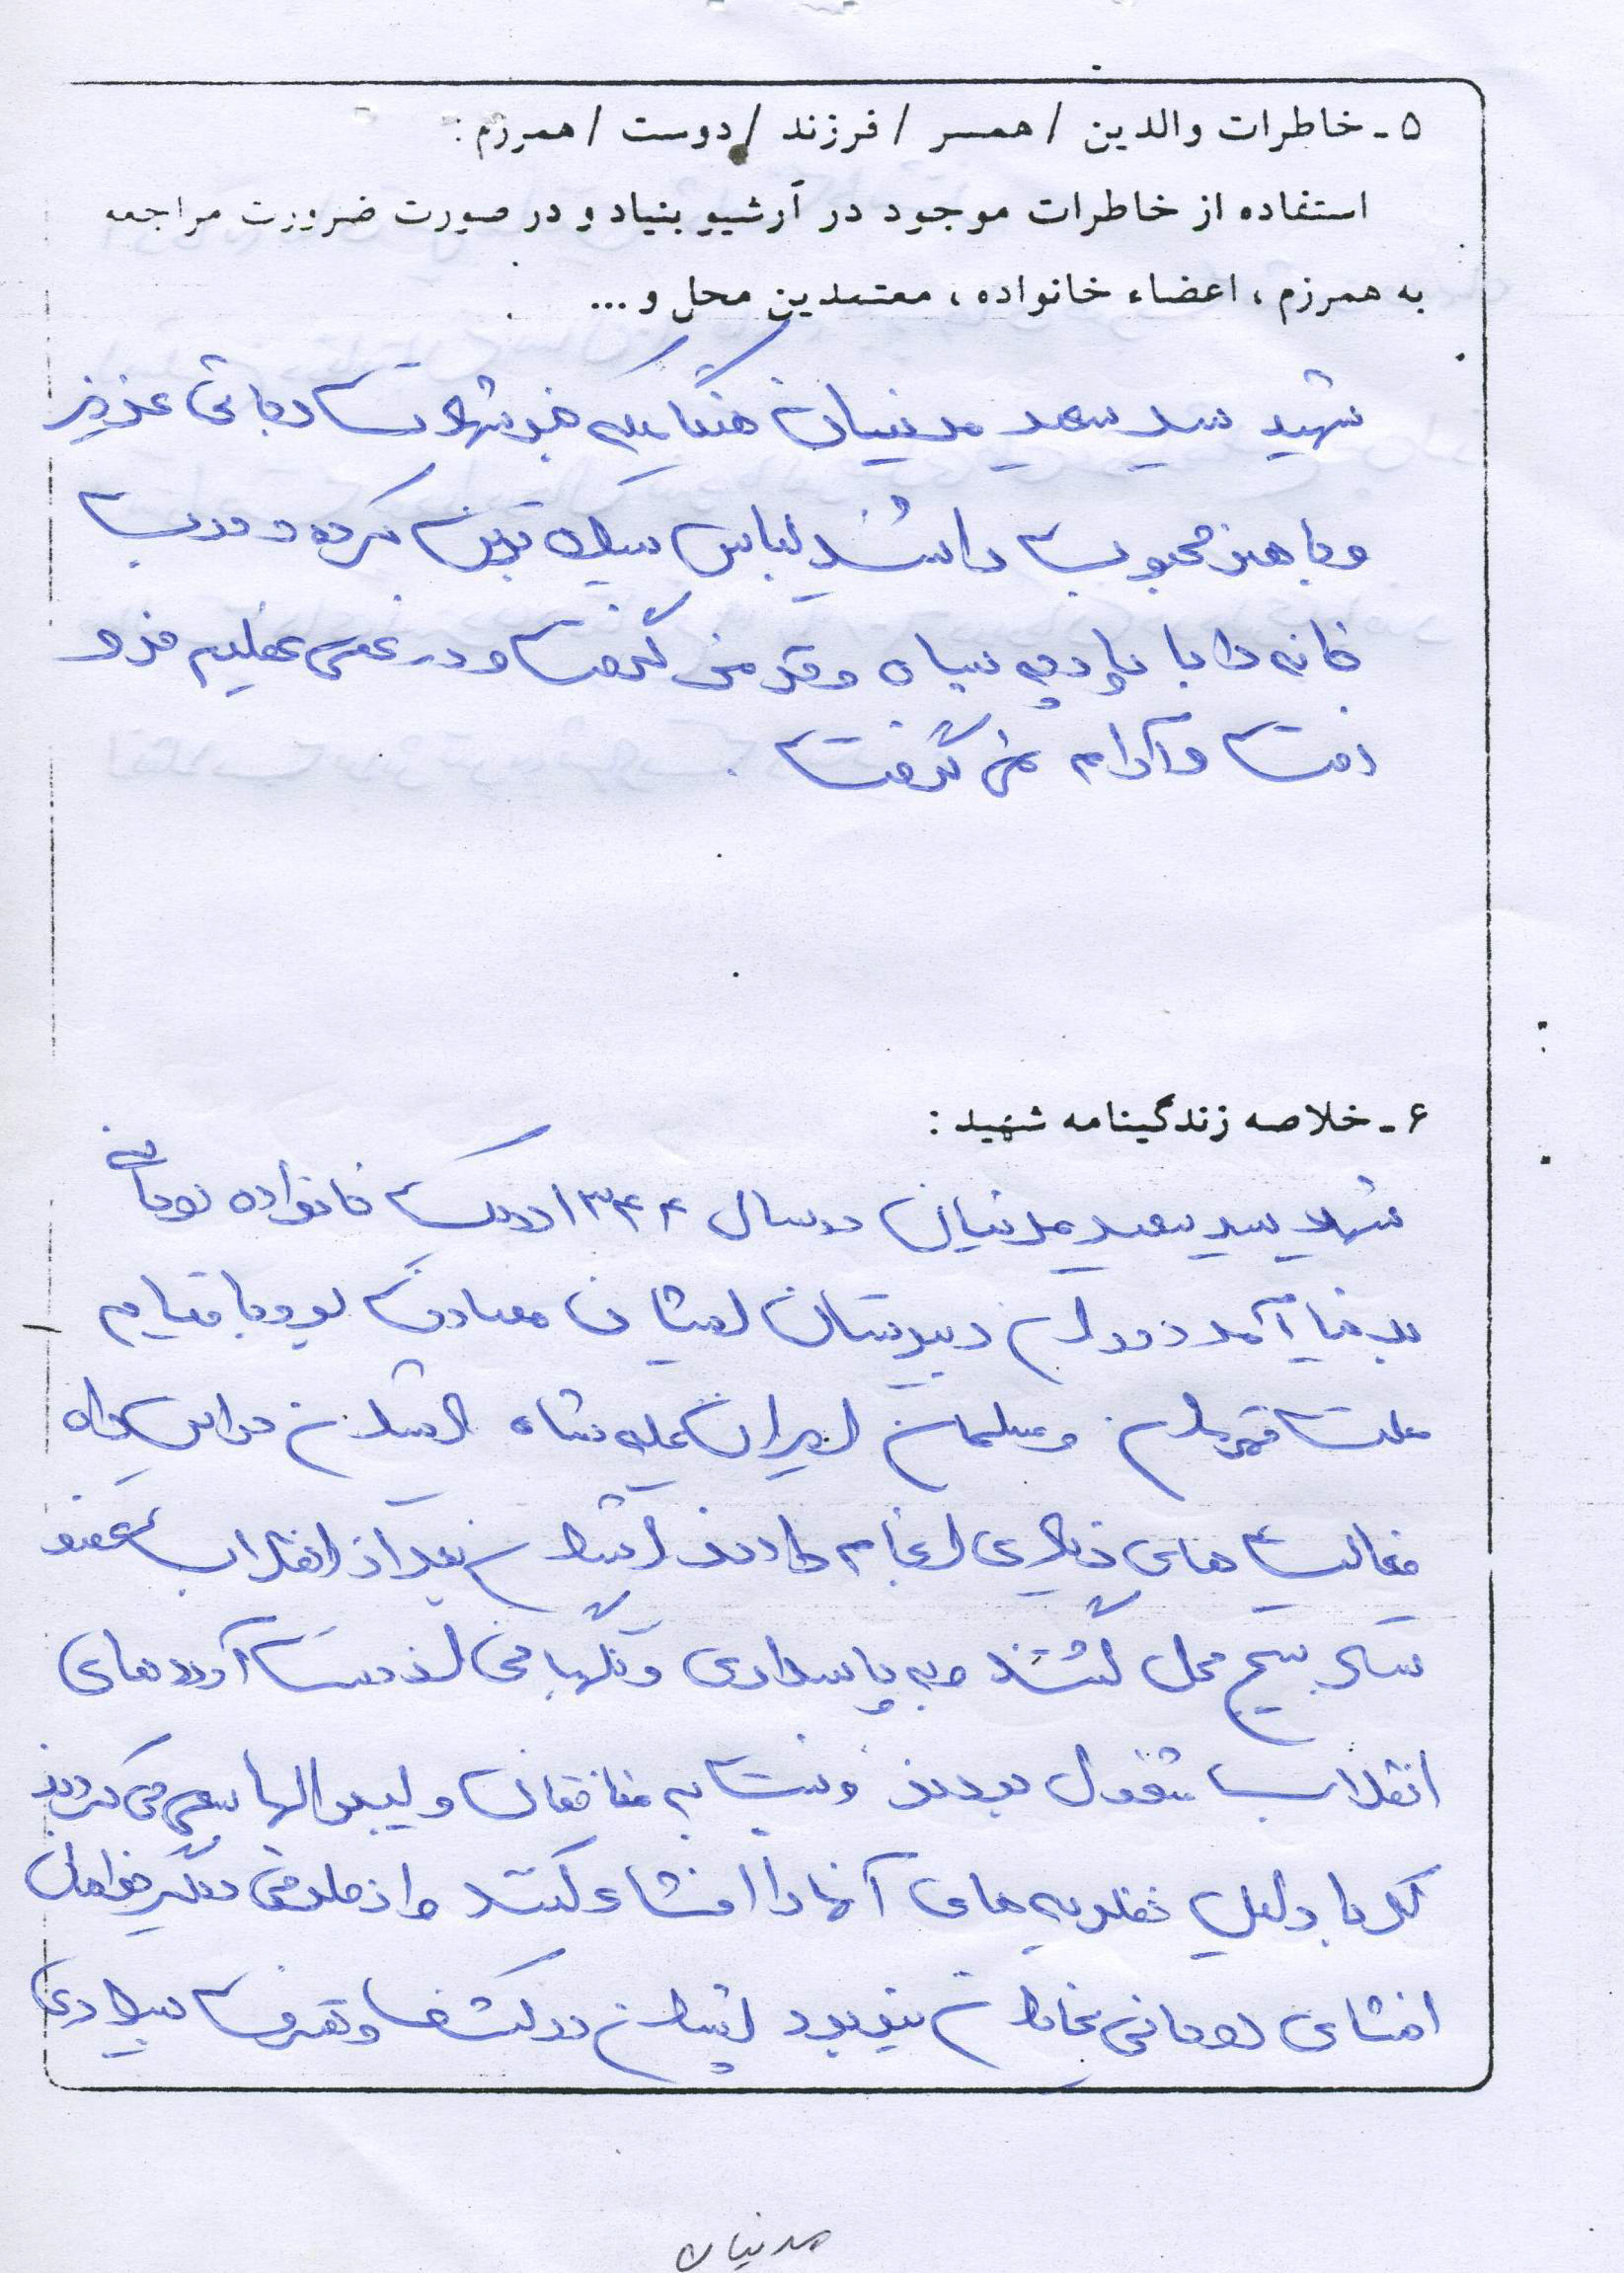 ۵ - خاطرات والدین / همسر / فرزند / دوست / همرزم :
استفاده از خاطرات موجود در آرشیو بنیاد و در صورت ضرورت مراجعه
به همرزم ، اعضاء خانواده ، معتمدین محل و ...
شهید سید سعید مدنیان هنگامیکه خبر شهادت رجائی عزیز
و باهنر محبوب را شنید لباس سیاه بتن کرده و درب
خانه را با پارچه سیاه و قرمز گرفت و در غمی عظیم فرو
رفت و آرام نمی گرفت .
۶ - خلاصه زندگینامه شهید :
شهید سید سعید مدنیان در سال ۱۳۴۴ در یک خانواده روحانی
بدنیا آمد دوران دبیرستان ایشان مصادف بود با قیام
ملت قهرمان و مسلمان ایران علیه شاه ایشان در این راه
فعالیت های زیادی انجام دادند ایشان بعد از انقلاب عضو
بسیج محل گشتند و به پاسداری و نگهبانی از دست آوردهای
انقلاب مشغول بودند و نسبت به منافقان و لیبرالها سعی می کردند
که با دلیل نظریه های آنها را افشاء کنند و از طرفی دیگر خواهان
افشای روحانی نمایان نیز بود ایشان در کشف و تصرف
مدنیان